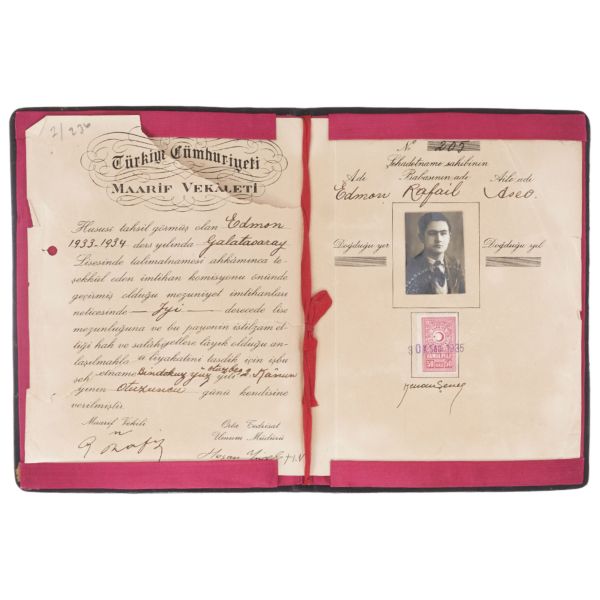 2/236
Türkiye Cümhuriyeti
MAARİF VEKÂLETİ
Hususî tahsil görmüş olan Edmon
1933-1934 ders yılında Galatasaray
Lisesinde talimatnamesi ahkâmınca te-
şekkül eden imtihan komisyonu önünde
geçirmiş olduğu mezuniyet imtihanları
neticesinde — İyi — derecede lise
mezunluğuna ve bu payenin istilzam et-
tiği hak ve salâhiyetlere lâyık olduğu an-
laşılmakla liyakatini tasdik için işbu
Bindokuz yüz otuzbeş yılı 2. Kânun
Otuzuncu günü kendisine
verilmiştir.
Maarif Vekili
Orta Tedrisat
Umum Müdürü
№ 205
Şehadetname sahibinin
Adı Babasının adı Aile adı
Edmon Rafail Aseo.
Doğduğu yer Doğduğu yıl
1935